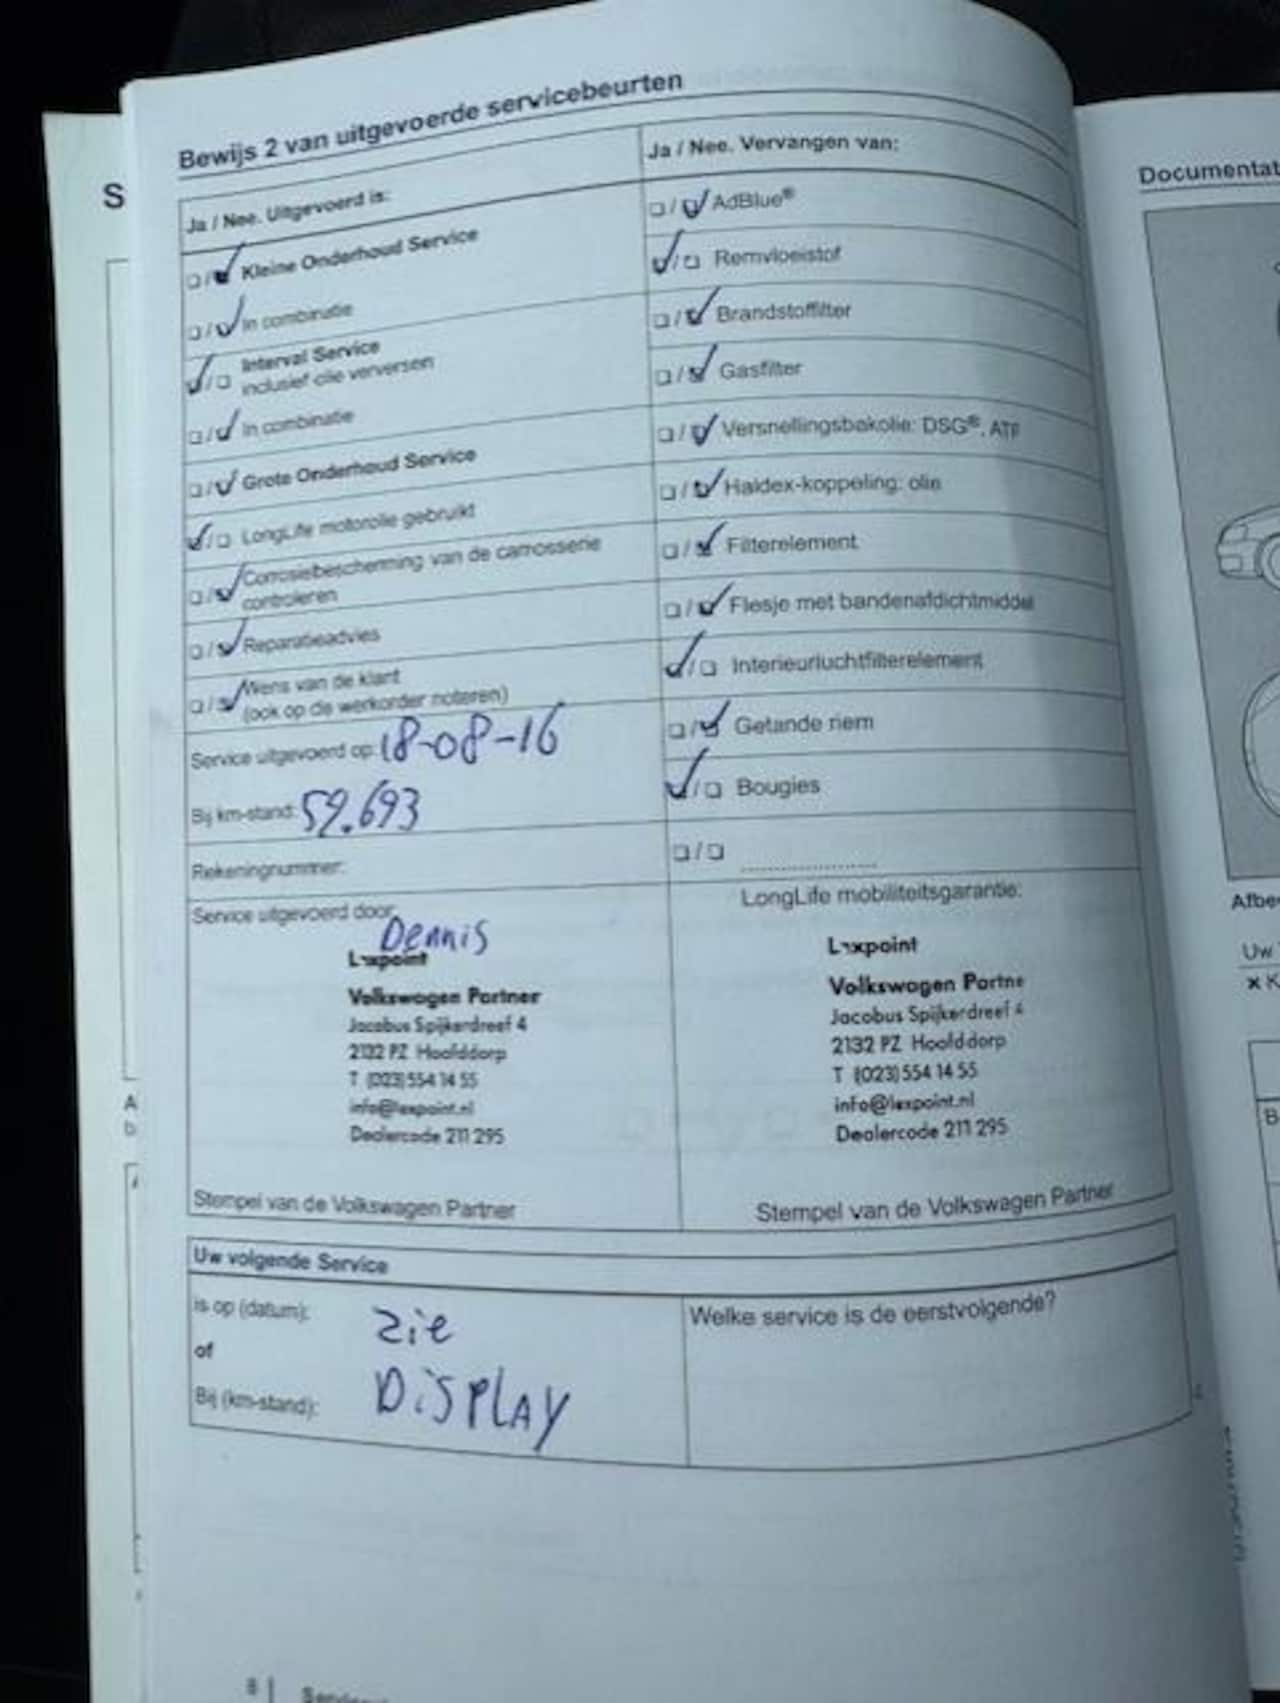 Bewijs 2 van uitgevoerde servicebeurten
Ja / Nee. Uitgevoerd is:
Kleine Onderhoud Service
In combinatie
Interval Service
inclusief olie verversen
In combinatie
Grote Onderhoud Service
LongLife motorolie gebruikt
Corrosiebescherming van de carrosserie
controleren
Reparatieadvies
Wens van de klant
(ook op de werkorder noteren)
Service uitgevoerd op: 18-08-16
Bij km-stand: 59.693
Rekeningnummer:
Service uitgevoerd door:
Dennis
Lexpoint
Volkswagen Partner
Jacobus Spijkerdreef 4
2132 PZ Hoofddorp
T (023) 554 14 55
info@lexpoint.nl
Dealercode 211 295
Stempel van de Volkswagen Partner
Ja / Nee. Vervangen van:
AdBlue®
Remvloeistof
Brandstoffilter
Gasfilter
Versnellingsbakolie: DSG®, ATF
Haldex-koppeling: olie
Filterelement
Flesje met bandenafdichtmiddel
Interieurluchtfilterelement
Getande riem
Bougies
LongLife mobiliteitsgarantie:
Lexpoint
Volkswagen Partne
Jacobus Spijkerdreef 4
2132 PZ Hoofddorp
T (023) 554 14 55
info@lexpoint.nl
Dealercode 211 295
Stempel van de Volkswagen Partner
Uw volgende Service
is op (datum):
of
Bij (km-stand):
zie
DiSPLAY
Welke service is de eerstvolgende?
8
S
A
b
Documentat
Afbe
Uw
× K
B